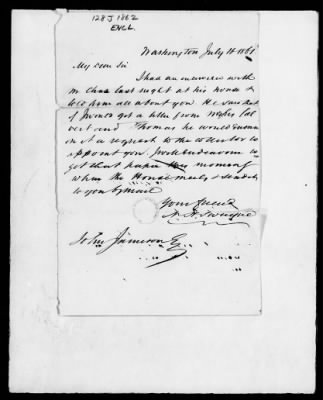 128 J 1862
ENCL.
Washington July 18 1861
My dear Sir
I had an interview with
Mr Chase last night at his house &
told him all about you. He says that
if I would get a letter from
and Thomas he would
on it a request to the collector to
appoint you. I will endeavour to
get that paper this morning
when the House meets & send it
to you by mail
Your friend
John Jameson Esq